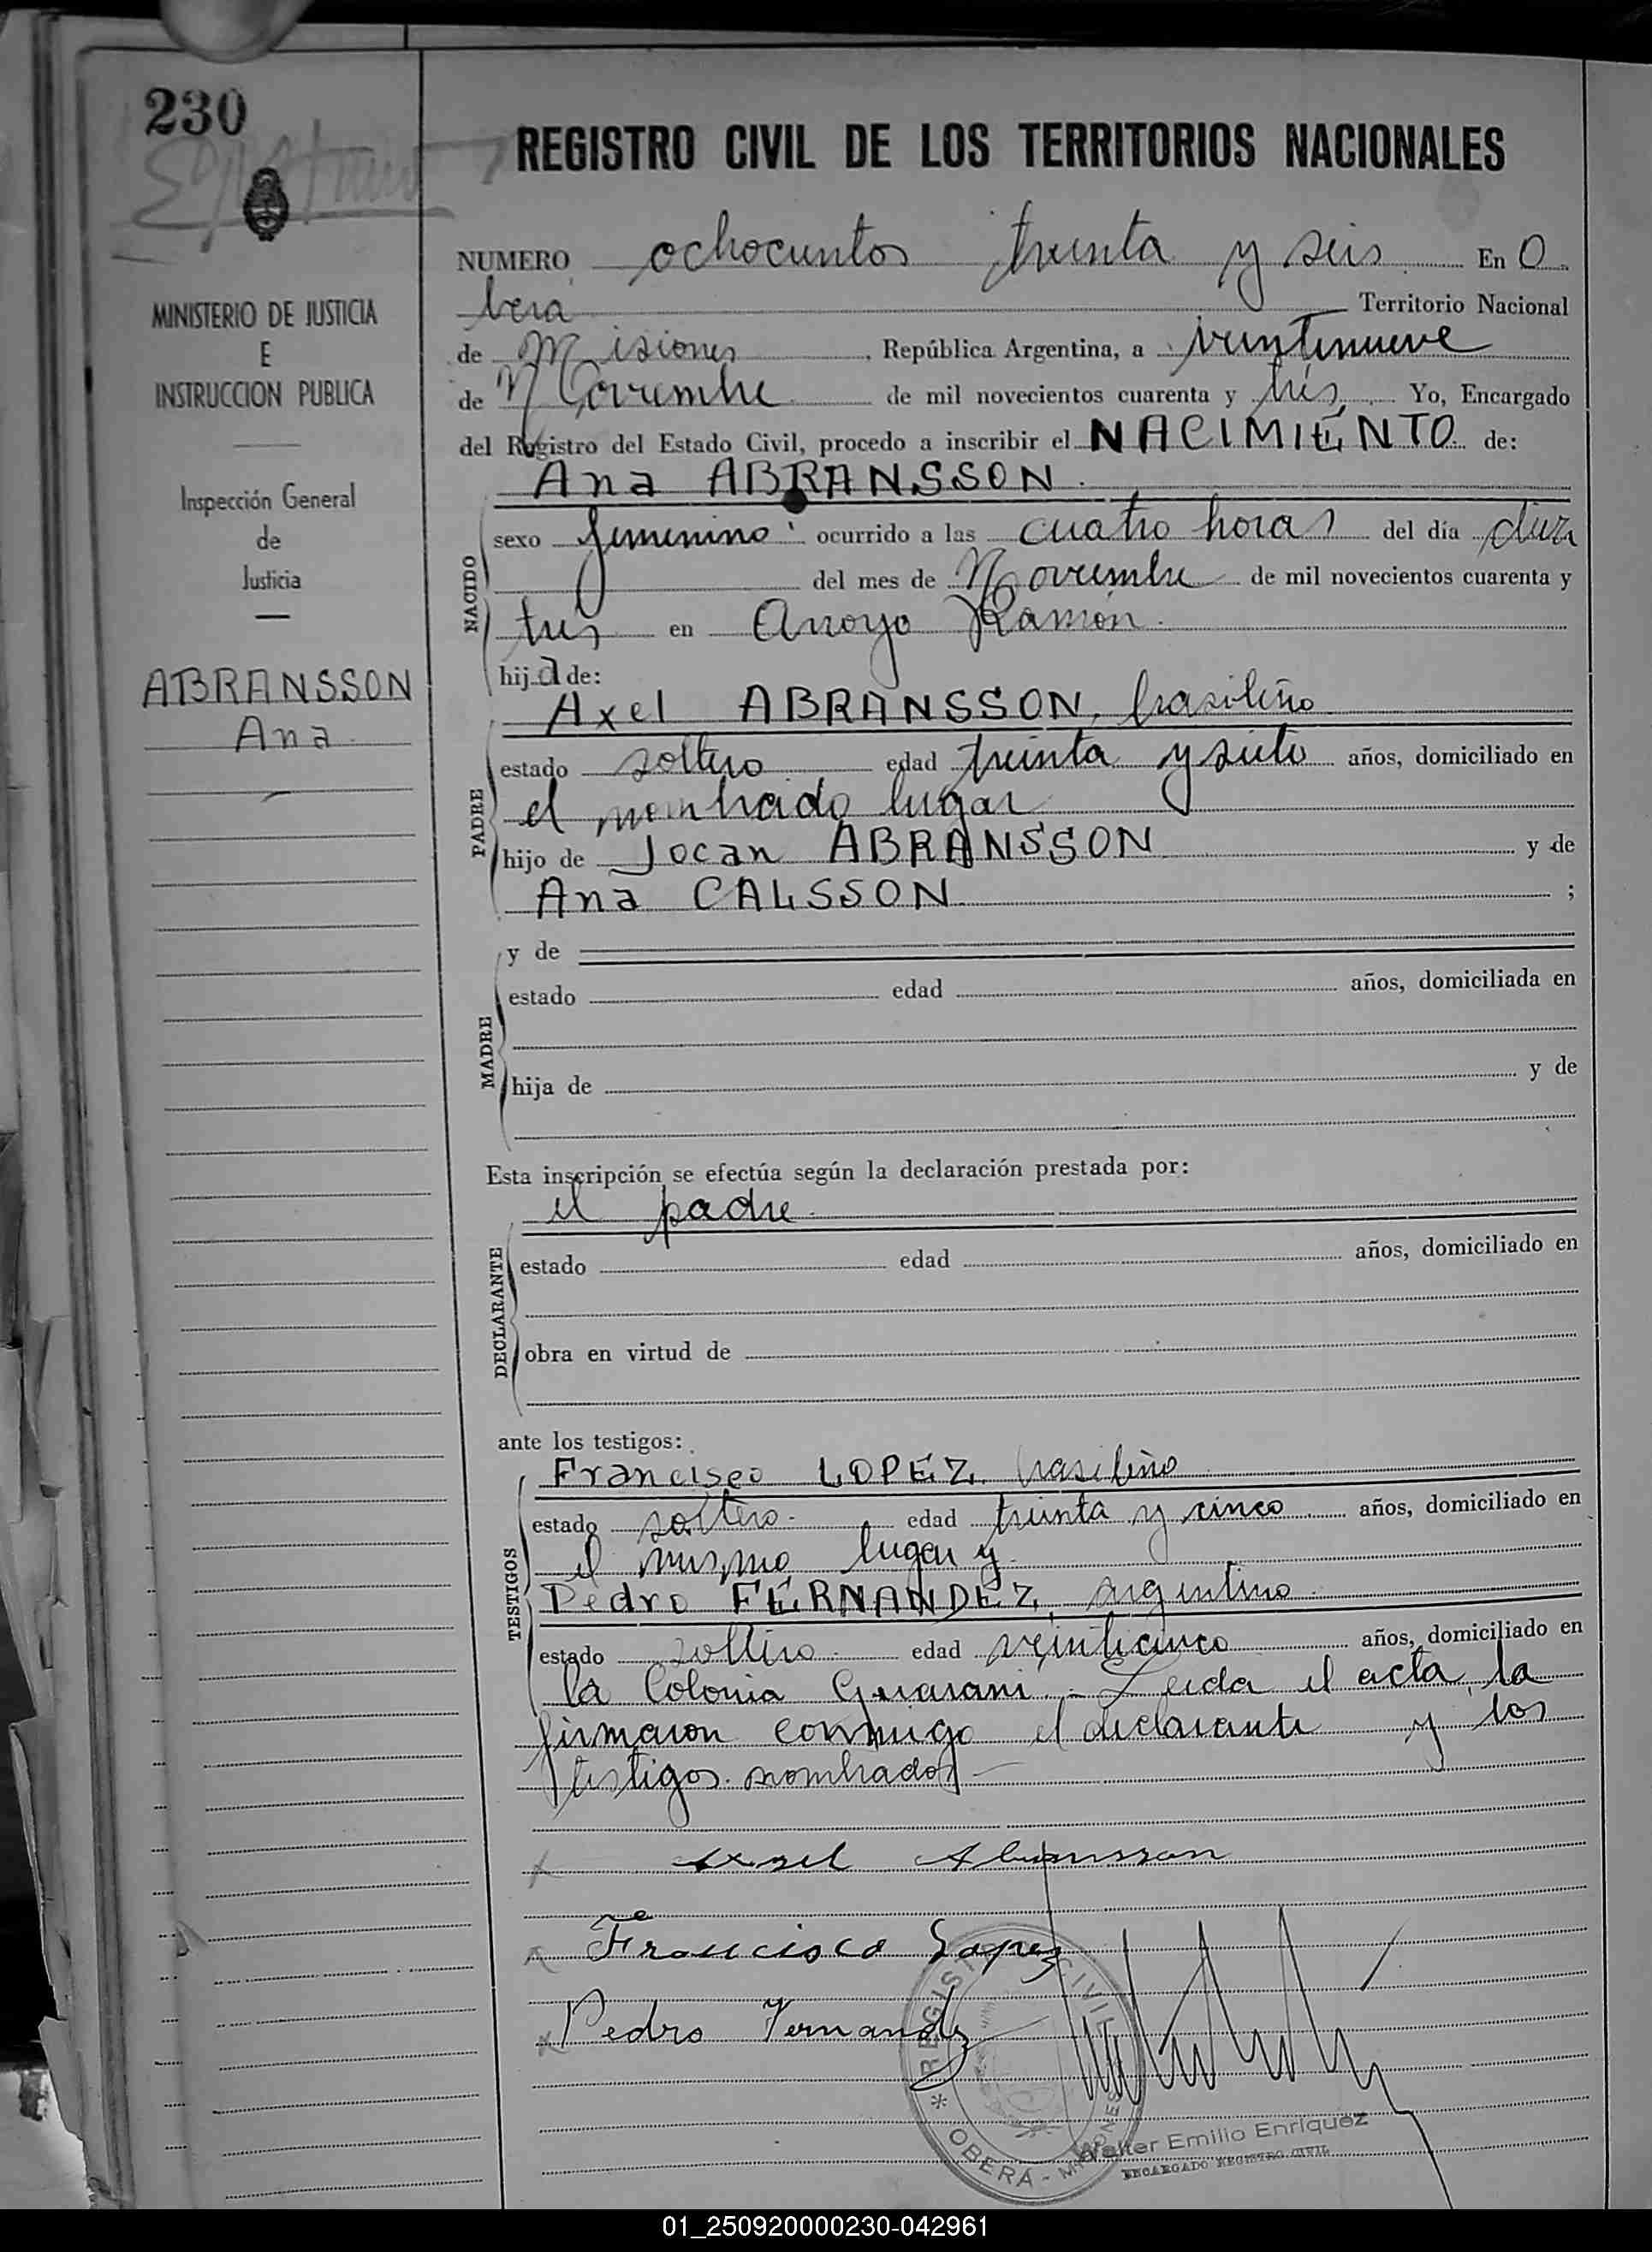 230
REGISTRO CIVIL DE LOS TERRITORIOS NACIONALES
NUMERO ochocientos treinta y seis En O
berá Territorio Nacional
de Misiones, República Argentina, a veintinueve
de Noviembre de mil novecientos cuarenta y tres. Yo, Encargado
del Registro del Estado Civil, procedo a inscribir el NACIMIENTO de:
MINISTERIO DE JUSTICIA
E
INSTRUCCION PUBLICA
Inspección General
de
Justicia
ABRANSSON
Ana
NACIDO
Ana ABRANSSON.
sexo femenino ocurrido a las cuatro horas del día diez
del mes de Noviembre de mil novecientos cuarenta y
tres en Arroyo Ramón.
hija de:
PADRE
Axel ABRANSSON, brasileño
estado soltero edad treinta y siete años, domiciliado en
el nombrado lugar
hijo de Jocan ABRANSSON y de
Ana CALSSON. ;
MADRE
y de
estado edad años, domiciliada en
hija de y de
Esta inscripción se efectúa según la declaración prestada por:
DECLARANTE
el padre.
estado edad años, domiciliado en
obra en virtud de
ante los testigos:
TESTIGOS
Francisco LOPEZ, brasileño
estado soltero. edad treinta y cinco años, domiciliado en
el mismo lugar y
Pedro FERNANDEZ, argentino.
estado soltero. edad veinticinco años, domiciliado en
la Colonia Guarani.- Leida el acta, la
firmaron conmigo el declarante y los
testigos nombrados-
Axel Abransson
Francisco Lopez
Pedro Fernandez
REGISTRO CIVIL
* OBERÁ - MISIONES
Walter Emilio Enriquez
ENCARGADO REGISTRO CIVIL
01_250920000230-042961